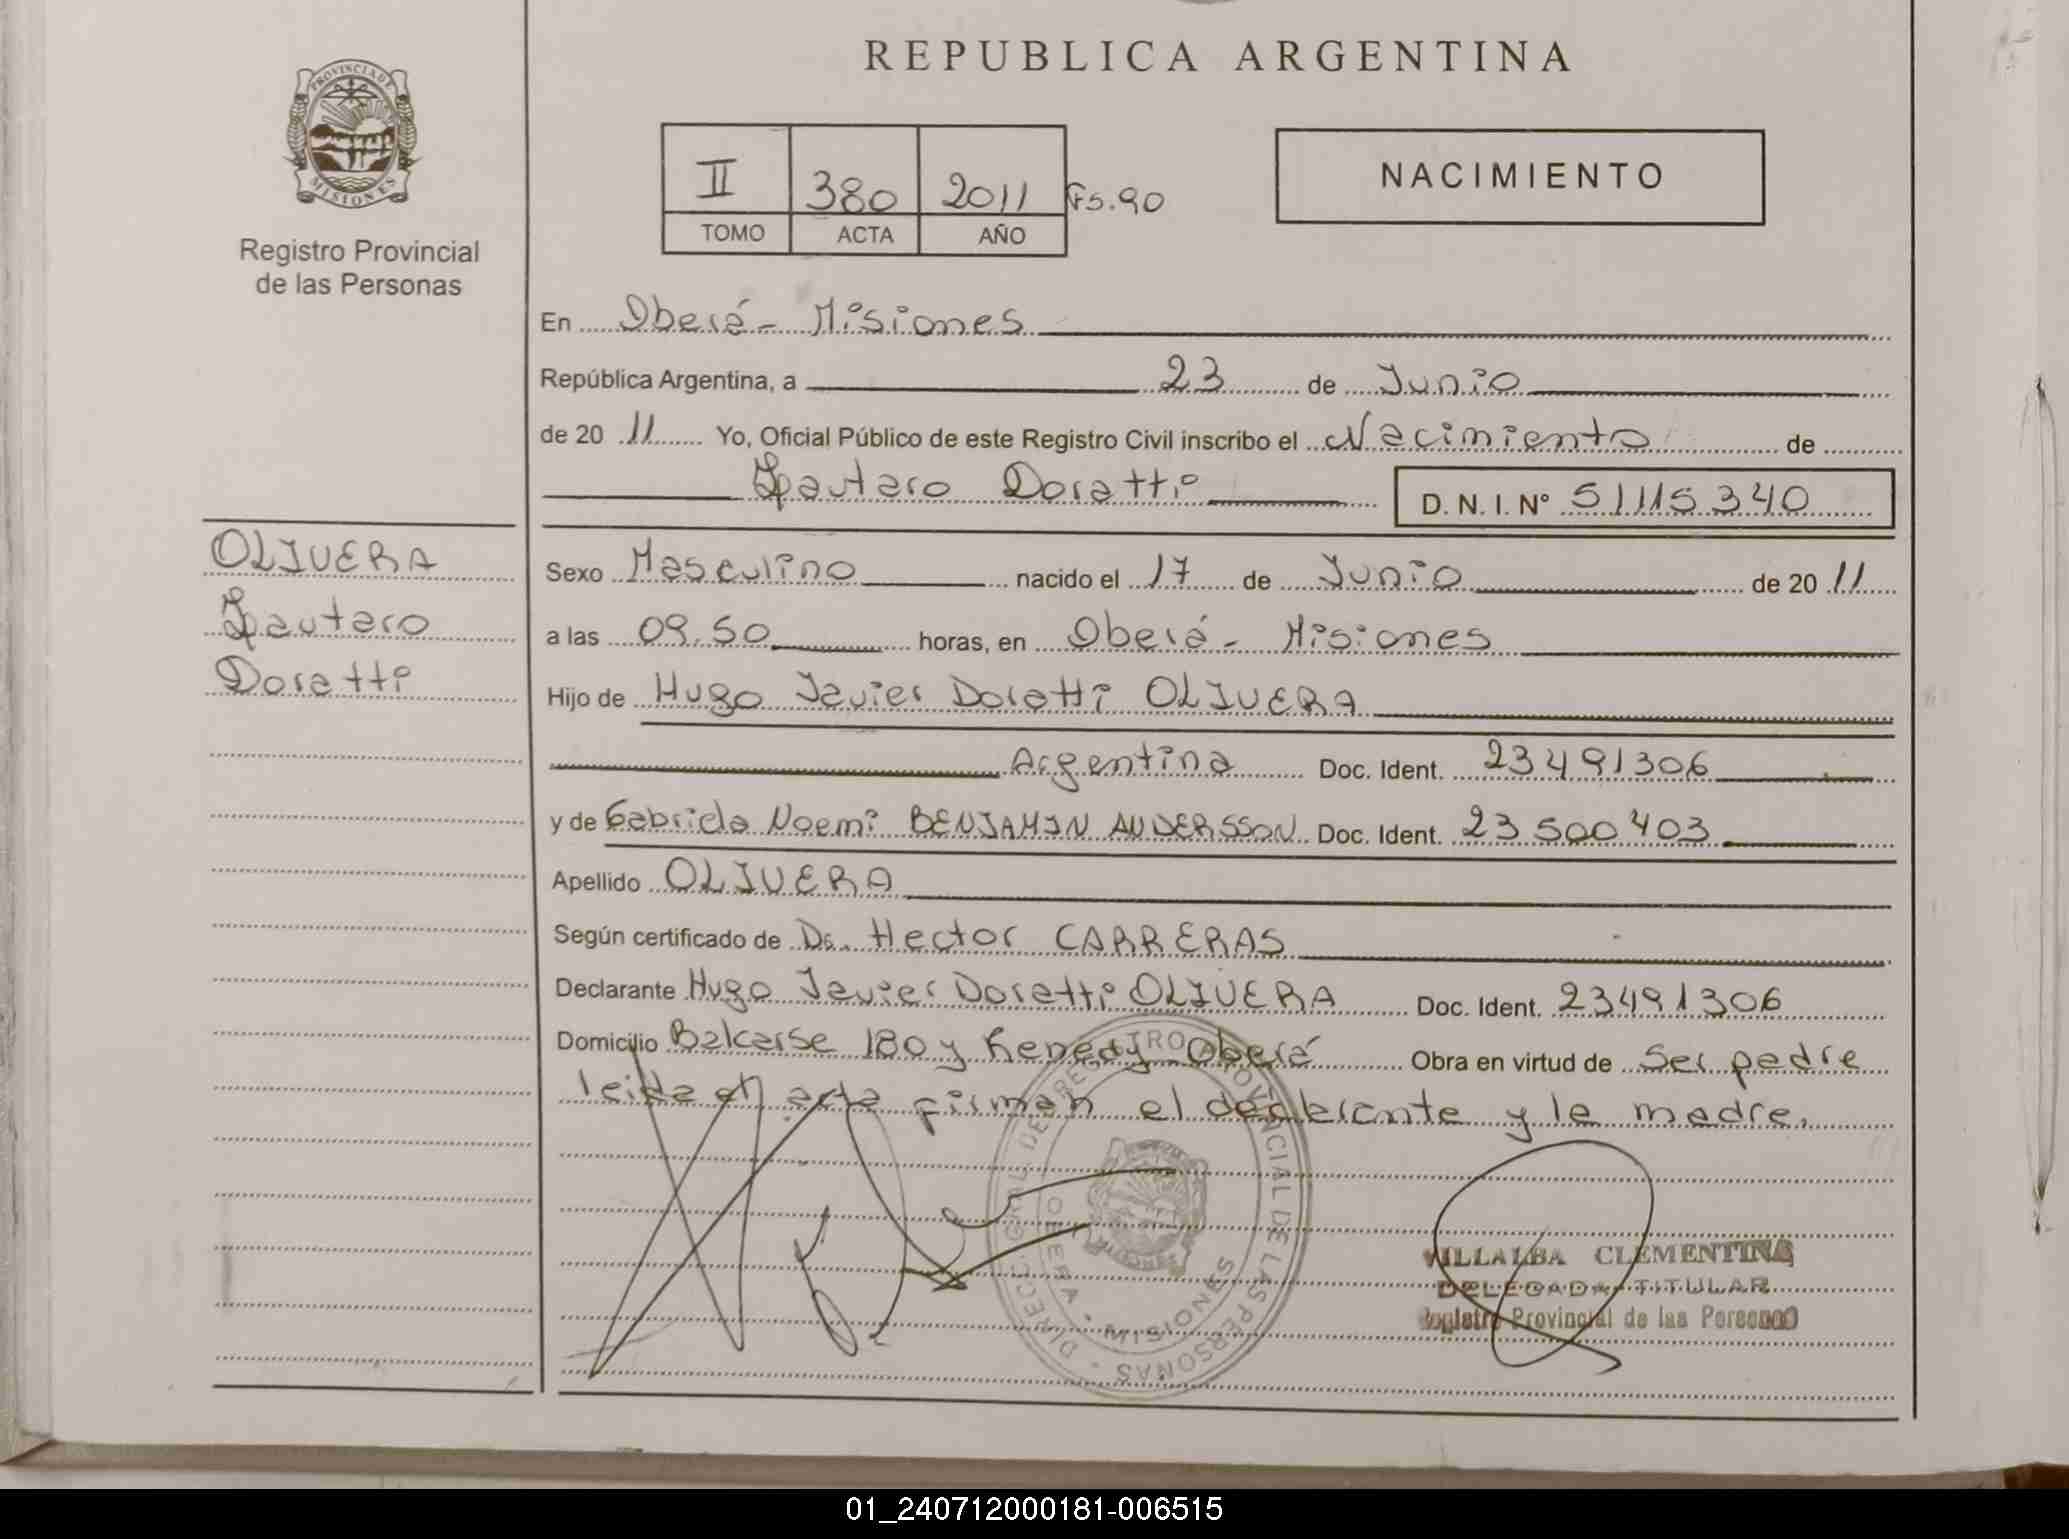 REPUBLICA ARGENTINA
PROVINCIA DE MISIONES
Registro Provincial
de las Personas
II 380 2011 Fs. 90
TOMO ACTA AÑO
NACIMIENTO
En Oberá - Misiones
República Argentina, a 23 de Junio
de 20 11 Yo, Oficial Público de este Registro Civil inscribo el Nacimiento de
Lautaro Doratti D. N. I. Nº 51115340
OLIVERA
Lautaro
Doratti
Sexo Masculino nacido el 17 de Junio de 20 11
a las 09.50 horas, en Oberá - Misiones
Hijo de Hugo Javier Doratti OLIVERA
Argentina Doc. Ident. 23491306
y de Gabriela Noemi BENJAMIN ANDERSSON Doc. Ident. 23500403
Apellido OLIVERA
Según certificado de Dr. Hector CARRERAS
Declarante Hugo Javier Doratti OLIVERA Doc. Ident. 23491306
Domicilio Balcarse 180 y Kenedy Oberá Obra en virtud de Ser padre
leida el acta firman el declarante y la madre.
DIRECC. GRAL. DE REGISTRO PROVINCIAL DE LAS PERSONAS
OBERA - MISIONES
VILLALBA CLEMENTINA
DELEGADA TITULAR
Registro Provincial de las Personas
01_240712000181-006515